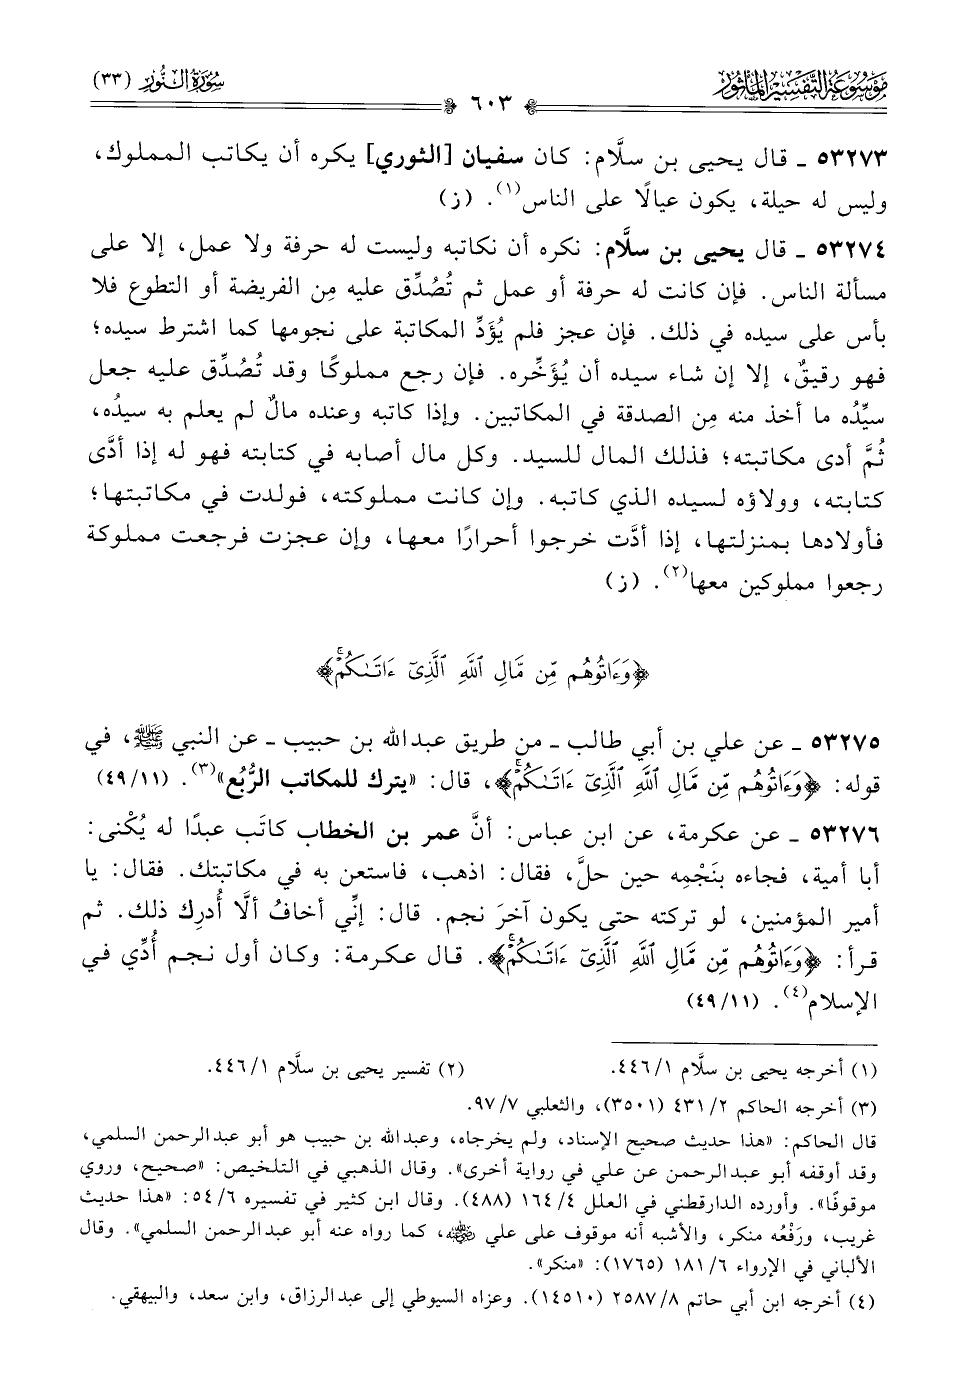 موسوعة التفسير المأثور
٦٠٣
سورة النور (٣٣)
٥٣٢٧٣ ـ قال يحيى بن سلَّام: كان سفيان [الثوري] يكره أن يكاتب المملوك،
وليس له حيلة، يكون عيالًا على الناس(١). (ز)
٥٣٢٧٤ ـ قال يحيى بن سلَّام: نكره أن نكاتبه وليست له حرفة ولا عمل، إلا على
مسألة الناس. فإن كانت له حرفة أو عمل ثم تُصُدِّق عليه مِن الفريضة أو التطوع فلا
بأس على سيده في ذلك. فإن عجز فلم يُؤَدِّ المكاتبة على نجومها كما اشترط سيده؛
فهو رقيقٌ، إلا إن شاء سيده أن يُؤَخِّره. فإن رجع مملوكًا وقد تُصُدِّق عليه جعل
سيِّدُه ما أخذ منه مِن الصدقة في المكاتبين. وإذا كاتبه وعنده مالٌ لم يعلم به سيدُه،
ثُمَّ أدى مكاتبته؛ فذلك المال للسيد. وكل مال أصابه في كتابته فهو له إذا أدَّى
كتابته، وولاؤه لسيده الذي كاتبه. وإن كانت مملوكته، فولدت في مكاتبتها؛
فأولادها بمنزلتها، إذا أدَّت خرجوا أحرارًا معها، وإن عجزت فرجعت مملوكة
رجعوا مملوكين معها(٢). (ز)
﴿وَءَاتُوهُم مِّن مَّالِ ٱللَّهِ ٱلَّذِىٓ ءَاتَىٰكُمْۚ﴾
٥٣٢٧٥ ـ عن علي بن أبي طالب ـ من طريق عبدالله بن حبيب ـ عن النبي ﷺ، في
قوله: ﴿وَءَاتُوهُم مِّن مَّالِ ٱللَّهِ ٱلَّذِىٓ ءَاتَىٰكُمْۚ﴾، قال: «يترك للمكاتب الرُّبُع»(٣). (٤٩/١١)
٥٣٢٧٦ ـ عن عكرمة، عن ابن عباس: أنَّ عمر بن الخطاب كاتَب عبدًا له يُكْنى:
أبا أمية، فجاءه بنَجْمِه حين حلَّ، فقال: اذهب، فاستعن به في مكاتبتك. فقال: يا
أمير المؤمنين، لو تركته حتى يكون آخرَ نجم. قال: إنِّي أخافُ ألَّا أُدرِك ذلك. ثم
قرأ: ﴿وَءَاتُوهُم مِّن مَّالِ ٱللَّهِ ٱلَّذِىٓ ءَاتَىٰكُمْۚ﴾. قال عكرمة: وكان أول نجم أُدِّي في
الإسلام(٤). (٤٩/١١)
(١) أخرجه يحيى بن سلَّام ٤٤٦/١. (٢) تفسير يحيى بن سلَّام ٤٤٦/١.
(٣) أخرجه الحاكم ٤٣١/٢ (٣٥٠١)، والثعلبي ٩٧/٧.
قال الحاكم: «هذا حديث صحيح الإسناد، ولم يخرجاه، وعبدالله بن حبيب هو أبو عبدالرحمن السلمي،
وقد أوقفه أبو عبدالرحمن عن علي في رواية أخرى». وقال الذهبي في التلخيص: «صحيح، وروي
موقوفًا». وأورده الدارقطني في العلل ١٦٤/٤ (٤٨٨). وقال ابن كثير في تفسيره ٥٤/٦: «هذا حديث
غريب، ورَفْعُه منكر، والأشبه أنه موقوف على علي رضي الله عنه، كما رواه عنه أبو عبدالرحمن السلمي». وقال
الألباني في الإرواء ١٨١/٦ (١٧٦٥): «منكر».
(٤) أخرجه ابن أبي حاتم ٢٥٨٧/٨ (١٤٥١٠). وعزاه السيوطي إلى عبدالرزاق، وابن سعد، والبيهقي.